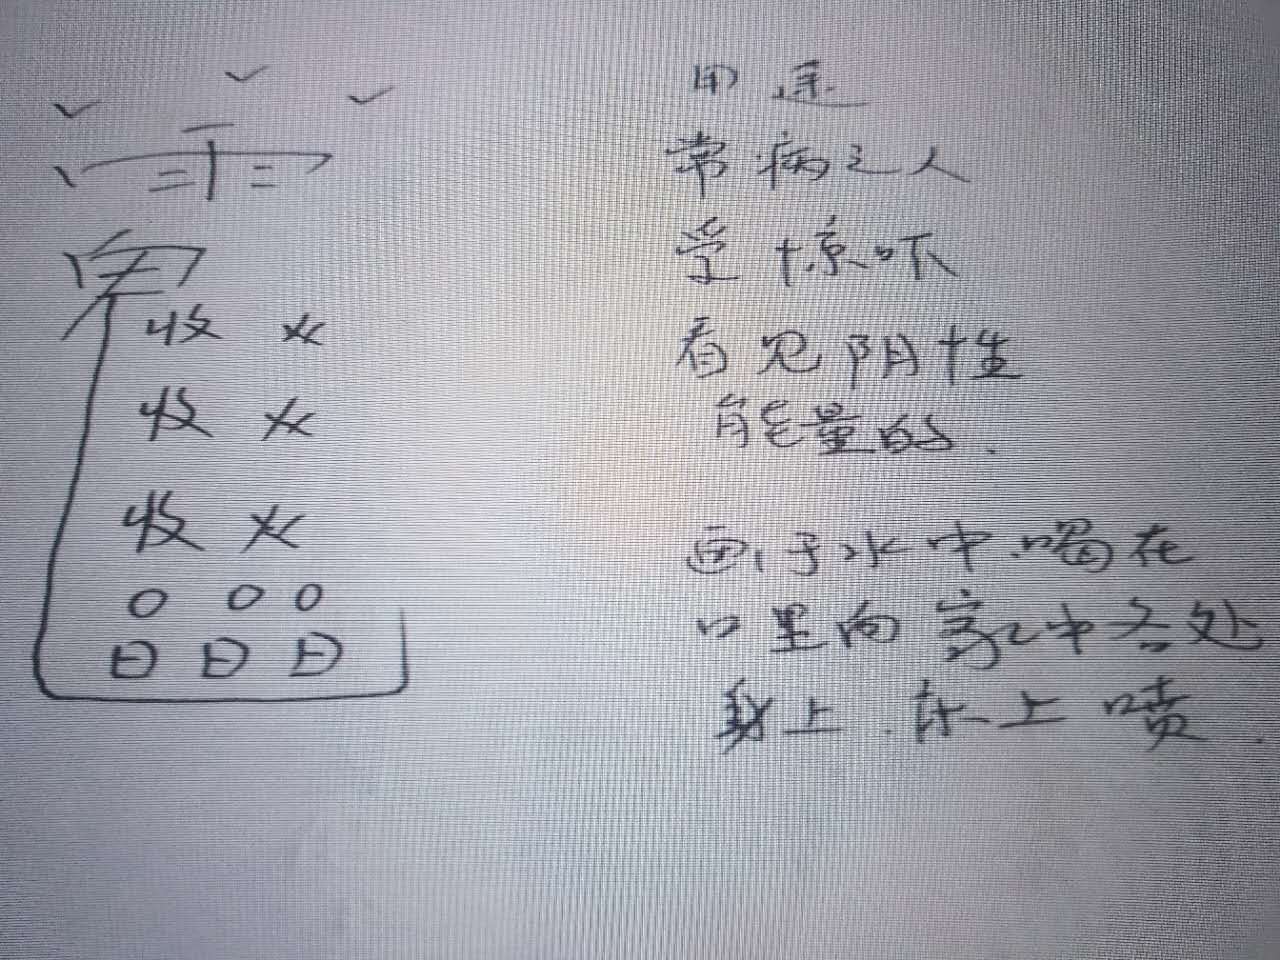 雨
鬼
收 
收 
收 
日 日 日
用途
常病之人
受惊吓
看见阴性
能量的.
画于水中.喝在
口里向家中各处
身上.床上喷.